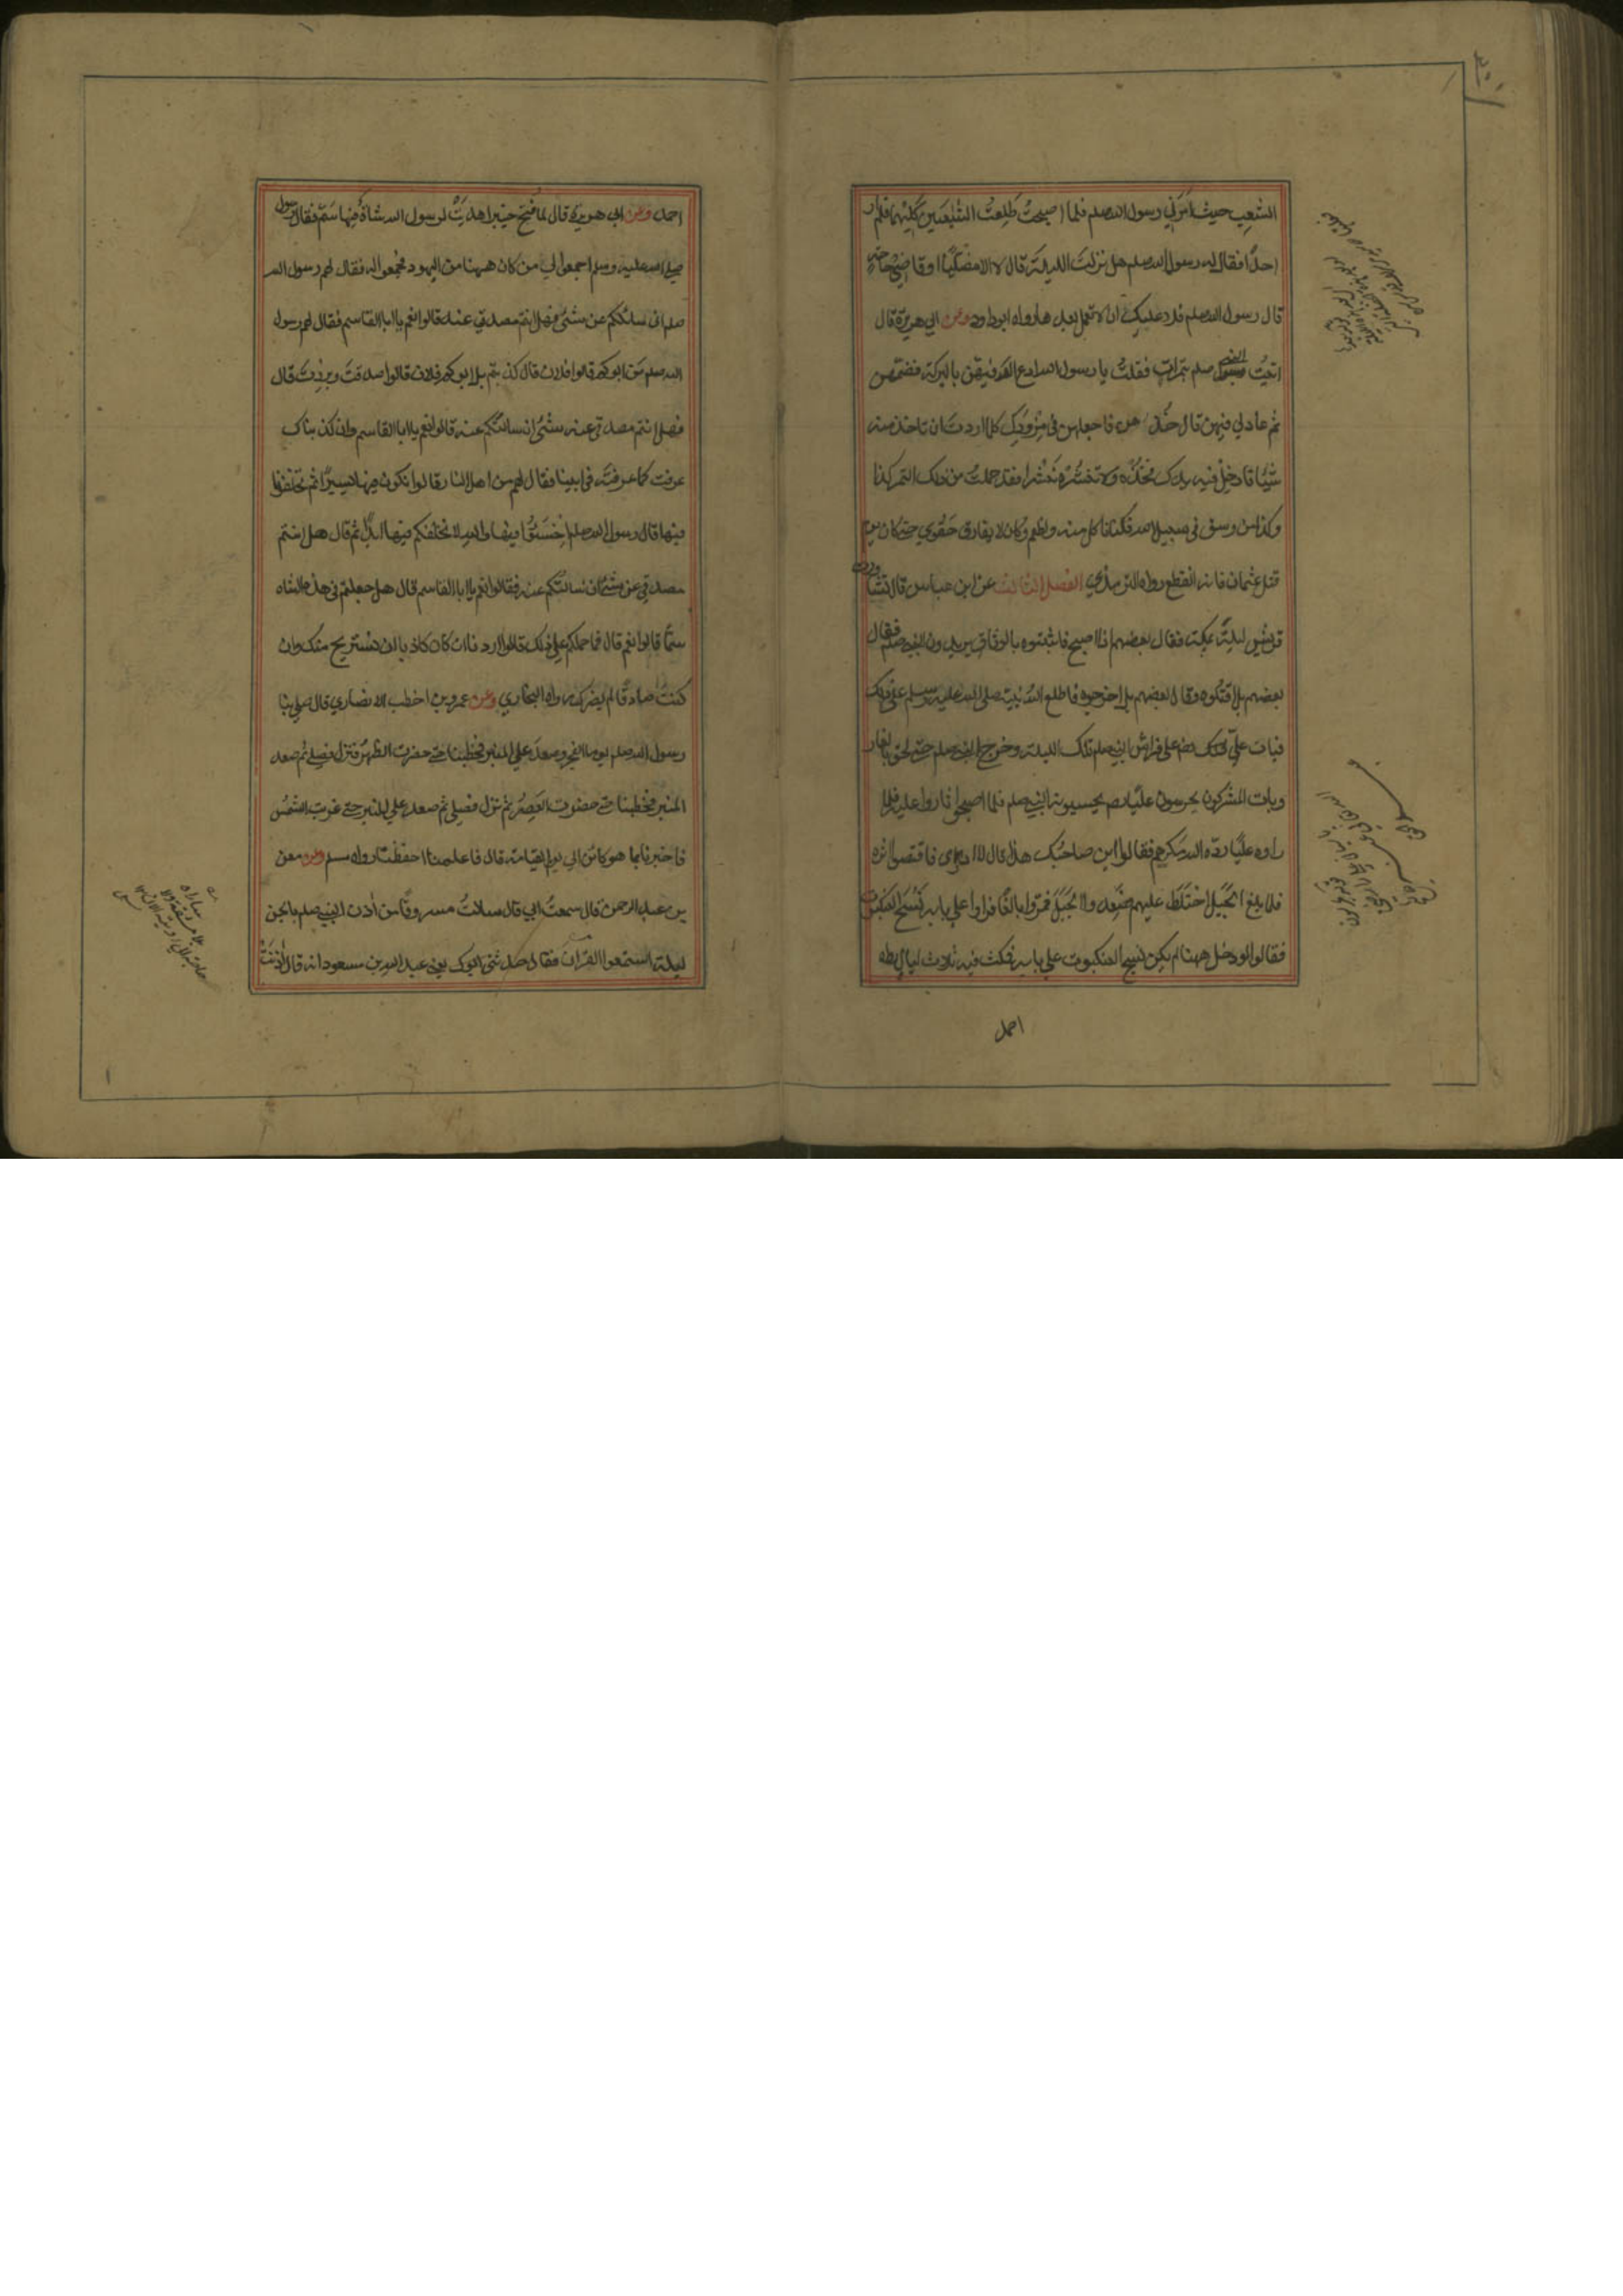 الشعب حيث امرني رسول الله صلعم فلما اصبحتُ طلعتُ الشعبين كليهما فلم ار
احدًا فقال له رسول الله صلعم هل نزلتَ الليلة قال لا الا مصليًا او قاضي حاجة
قال رسول الله صلعم فلا عليك ان لا تعمل بعدها رواه ابوداود وعن ابي هريرة قال
اتيتُ النبي صلعم بتمرات فقلتُ يا رسول الله ادع الله فيهن بالبركة فضمهن
ثم دعا لي فيهن قال خذهن فاجعلهن في مِزْوَدِك كلما اردتَ ان تاخذ منه
شيًا فادخِل فيه يدك فخذه ولا تنثُره نثرا فقد حملتُ من ذلك التمر كذا
وكذا من وسق في سبيل الله فكنا ناكل منه ونطعم وكان لا يفارق حَقْوي حتى كان يوم
قتل عثمان فانه انقطع رواه الترمذي الفصل الثالث عن ابن عباس قال تشاورت
قريش ليلةً بمكة فقال بعضهم اذا اصبح فاثبتوه بالوثاق يريدون النبي صلعم فقال
بعضهم بل اقتلوه وقال بعضهم بل اخرجوه فاطلع الله نبيه صلى الله عليه وسلم على ذلك
فبات عليّ على فراش النبي صلعم تلك الليلة وخرج النبي صلعم حتى لحق بالغار
وبات المشركون يحرسون عليًا يحسبونه النبي صلعم فلما اصبحوا ثاروا عليه فلما
راوه عليًا رد الله مكرهم فقالوا اين صاحبك هذا قال لا ادري فاقتصوا اثره
فلما بلغ الجبل اختلط عليهم فصعدوا الجبل فمروا بالغار فراوا علي بابه نسج العنكبوت
فقالوا لو دخل ههنا لم يكن نسج العنكبوت علي بابه فمكث فيه ثلاث ليال رواه
احمد
احمد وعن ابي هريرة قال لما فُتح خيبر اهديتْ لرسول الله شاةٌ فيها سمّ فقال رسول
صلى الله عليه وسلم اجمعوا لي من كان ههنا من اليهود فجمعوا له فقال لهم رسول الله
صلعم اني سائلكم عن شئ فهل انتم مصدقي عنه قالوا نعم يا ابا القاسم فقال لهم رسول
الله صلعم من ابوكم قالوا فلان قال كذبتم بل ابوكم فلان قالوا صدقتَ وبررتَ قال
فهل انتم مصدقي عنه شئ ان سالتكم عنه قالوا نعم يا ابا القاسم وان كذبناك
عرفت كما عرفتَه في ابينا فقال لهم من اهل النار قالوا نكون فيها يسيرًا ثم تخلفونا
فيها قال رسول الله صلعم اِخْسَئُوا فيها والله لا نخلفكم فيها ابدًا ثم قال هل انتم
مصدقي عن شئ ان سالتكم عنه فقالوا نعم يا ابا القاسم قال هل جعلتم في هذه الشاه
سمًا قالوا نعم قال فما حملكم على ذلك قالوا اردنا ان كان كاذبا ان نستريح منك وان
كنتَ صادقًا لم يضرك رواه البخاري وعن عمرو بن اخطب الانصاري قال صلى بنا
رسول الله صلعم يوما الفجر وصعد علي المنبر فخطبنا حتى حضرت الظهر فنزل فصلى ثم صعد
المنبر فخطبنا حتى حضرت العصر ثم نزل فصلى ثم صعد علي المنبر حتى غربت الشمس
فاخبرنا بما هو كائن الى يوم القيامة قال فاعلمنا احفظنا رواه مسلم وعن معن
بن عبد الرحمن قال سمعتُ ابي قال سالتُ مسروقًا من اٰذن النبي صلعم بالجن
ليلة استمعوا القرآن فقال حدثني ابوك يعني عبد الله بن مسعود انه قال اٰذنَتْ